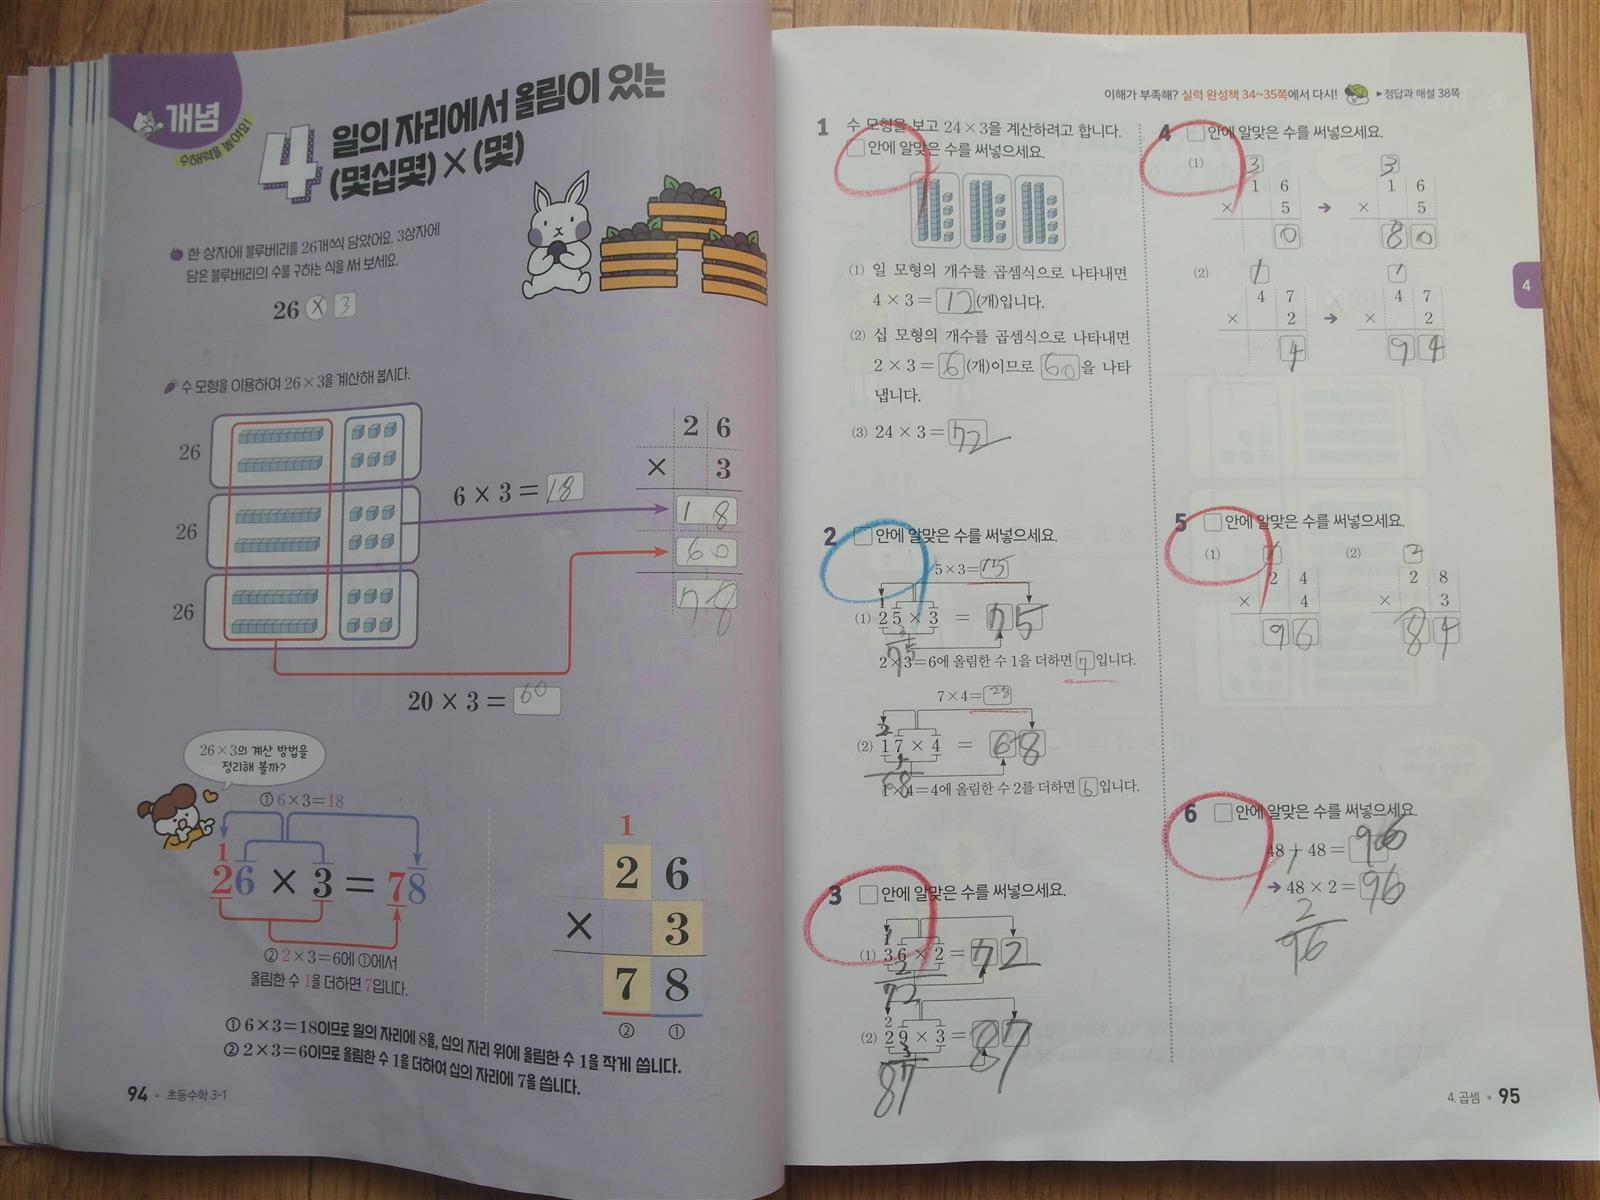 개념
수해력을 높여요!
4 일의 자리에서 올림이 있는
(몇십몇) × (몇)
한 상자에 블루베리를 26개씩 담았어요. 3상자에
담은 블루베리의 수를 구하는 식을 써 보세요.
26 × 3
수 모형을 이용하여 26×3을 계산해 봅시다.
26
26
26
6 × 3 = 18
20 × 3 = 60
2 6
× 3
1 8
6 0
7 8
26×3의 계산 방법을
정리해 볼까?
① 6×3=18
1
26 × 3 = 78
② 2×3=6에 ①에서
올림한 수 1을 더하면 7입니다.
1
2 6
× 3
7 8
② ①
① 6×3=18이므로 일의 자리에 8을, 십의 자리 위에 올림한 수 1을 작게 씁니다.
② 2×3=6이므로 올림한 수 1을 더하여 십의 자리에 7을 씁니다.
94 • 초등수학 3-1
이해가 부족해? 실력 완성책 34~35쪽에서 다시! ▶정답과 해설 38쪽
1 수 모형을 보고 24×3을 계산하려고 합니다.
□ 안에 알맞은 수를 써넣으세요.
(1) 일 모형의 개수를 곱셈식으로 나타내면
4×3= 12 (개)입니다.
(2) 십 모형의 개수를 곱셈식으로 나타내면
2×3= 6 (개)이므로 60 을 나타
냅니다.
(3) 24×3= 72
2 □ 안에 알맞은 수를 써넣으세요.
5×3= 15
1
(1) 25 × 3 = 75
3
75
2×3=6에 올림한 수 1을 더하면 7 입니다.
7×4= 28
2
(2) 17 × 4 = 68
68
1×4=4에 올림한 수 2를 더하면 6 입니다.
3 □ 안에 알맞은 수를 써넣으세요.
1
(1) 36 × 2 = 72
2
72
2
(2) 29 × 3 = 87
3
87
4 □ 안에 알맞은 수를 써넣으세요.
(1) 3 3
1 6 1 6
× 5 → × 5
0 8 0
(2) 1 1
4 7 4 7
× 2 → × 2
4 9 4
4
5 □ 안에 알맞은 수를 써넣으세요.
(1) 1 (2) 2
2 4 2 8
× 4 × 3
9 6 8 4
6 □ 안에 알맞은 수를 써넣으세요.
48 + 48 = 96
1
→ 48 × 2 = 96
2
96
4. 곱셈 • 95